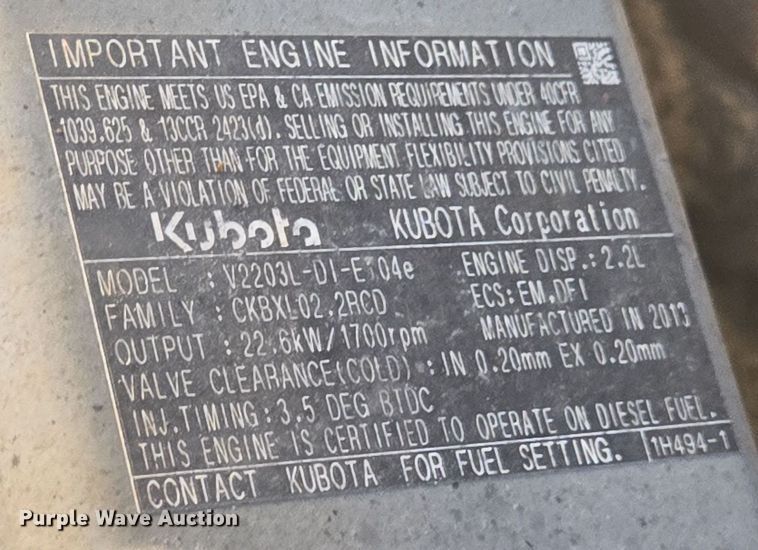 IMPORTANT ENGINE INFORMATION
THIS ENGINE MEETS US EPA & CA EMISSION REQUIREMENTS UNDER 40CFR
1039.625 & 13CCR 2423(d). SELLING OR INSTALLING THIS ENGINE FOR ANY
PURPOSE OTHER THAN FOR THE EQUIPMENT FLEXIBILITY PROVISIONS CITED
MAY BE A VIOLATION OF FEDERAL OR STATE LAW SUBJECT TO CIVIL PENALTY.
Kubota KUBOTA Corporation
MODEL : V2203L-DI-ET04e ENGINE DISP.: 2.2L
FAMILY : CKBXL02.2RCD ECS: EM,DFI
OUTPUT : 22.6kW/1700rpm MANUFACTURED IN 2013
VALVE CLEARANCE(COLD) : IN 0.20mm EX 0.20mm
INJ.TIMING : 3.5 DEG BTDC
THIS ENGINE IS CERTIFIED TO OPERATE ON DIESEL FUEL.
CONTACT KUBOTA FOR FUEL SETTING. 1H494-1
Purple Wave Auction